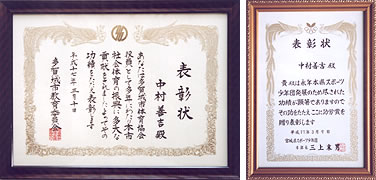 表彰状
中村善吉殿
あなたは多賀城市体育協会
役員として多年にわたり本市
社会体育の振興に多大な
貢献をされました よってその
功績をたたえ表彰します
平成十七年三月十日
多賀城市教育委員会
表彰状
中村善吉 殿
貴殿は永年本県スポーツ
少年団発展のため尽された
功績が顕著でありますので
その功をたたえここに功労賞を
贈り表彰します
平成11年3月9日
宮城県スポーツ少年団
本部長 三上良喜